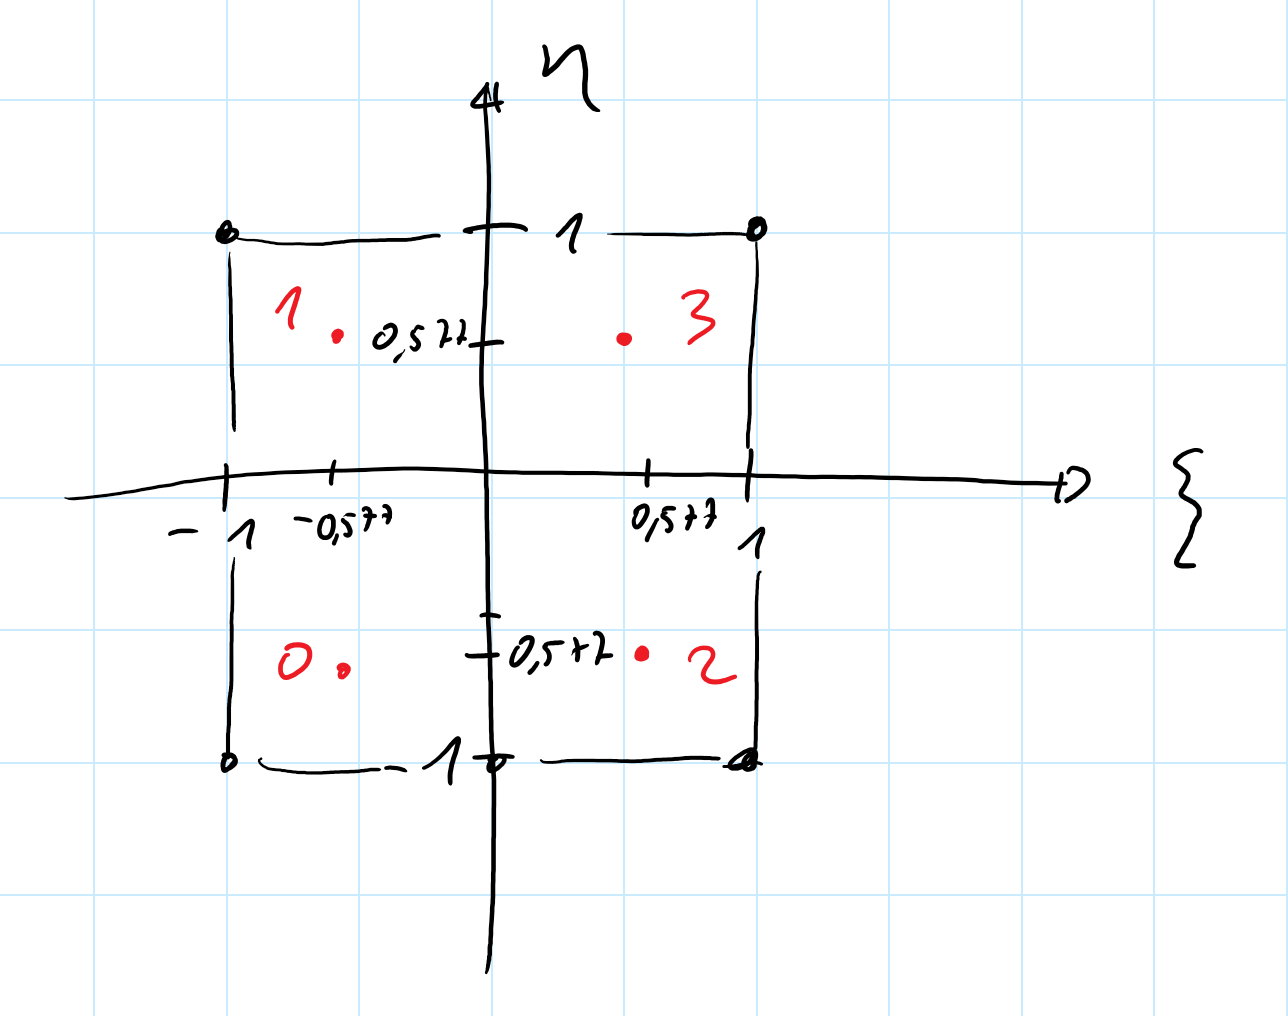 η
1
1 0,577 3
-1 -0,577 0,577 1 ξ
0 0,577 2
-1